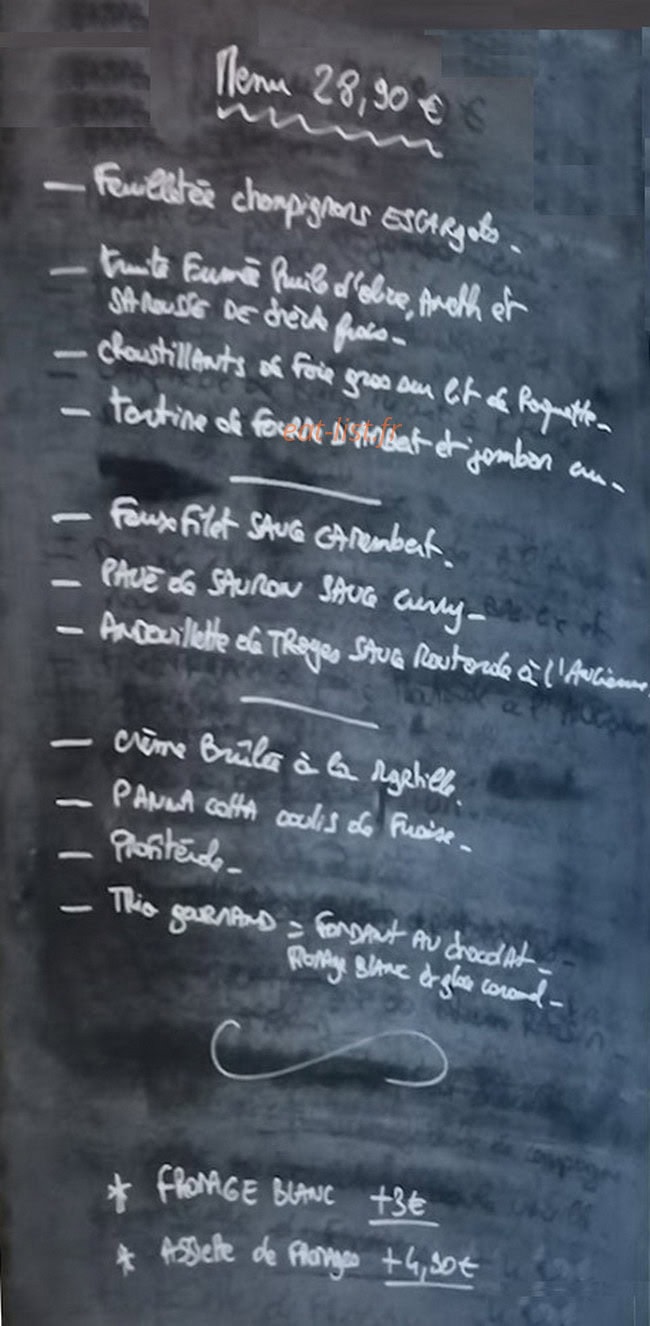 Menu 28,90 €
— Feuilletée champignons ESCARgots.
— truite Fumée huile d'olive, Aneth et
DE chèvre frais -
— croustillants de foie gras sur lit de Roquette -
— tartine de et jambon cru -
eat-list.fr
— Faux filet SAUCE CAMembert.
— PAVÉ de SAUMON SAUCE curry -
— ANDouillette de TRoyes SAUCE Moutarde à l'Ancienne
— crème Brûlée à la Myrtille.
— PANNA cotta coulis de Fraise -
— Profiterole -
— TRio gouRMAND = FONDANT AU chocolAt -
FROMAGE BLANC et glace caramel -
* FROMAGE BLANC +3€
* ASSiette de FRomages +4,90€